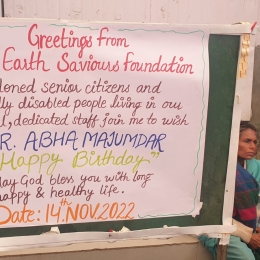 Greetings from
Earth Saviours Foundation
doned senior citizens and
lly disabled people living in our
l, dedicated staff join me to wish
R. ABHA MAJUMDAR
Happy Birthday"
May God bless you with long
happy & healthy life.
Date: 14th NOV. 2022